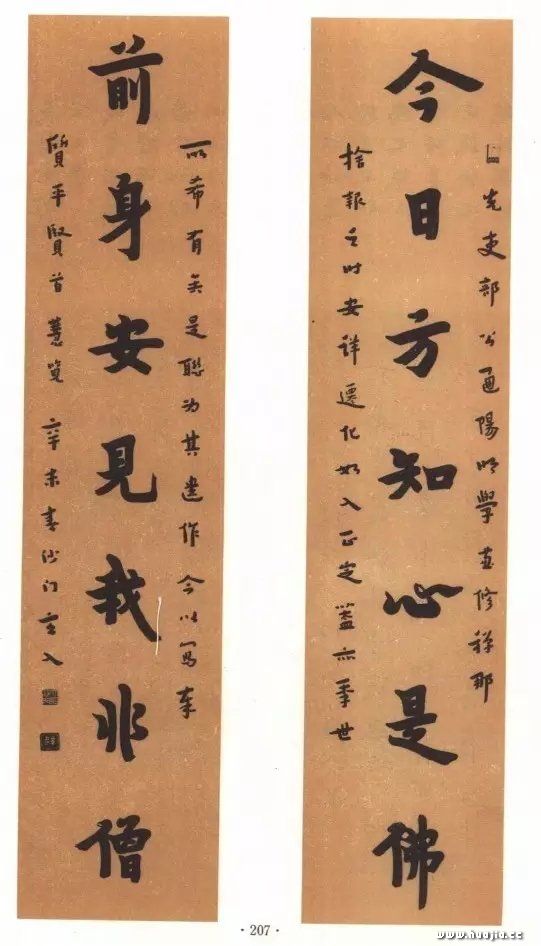 先吏部公通陽明學兼修禪那
今日方知心是佛
捨報之时安詳遷化如入正定蓋亦季世
所希有矣是聯为其遺作今以寫奉
前身安見我非僧
質平賢首慧覽 辛未春沙门玄入
·207·
www.huajia.cc